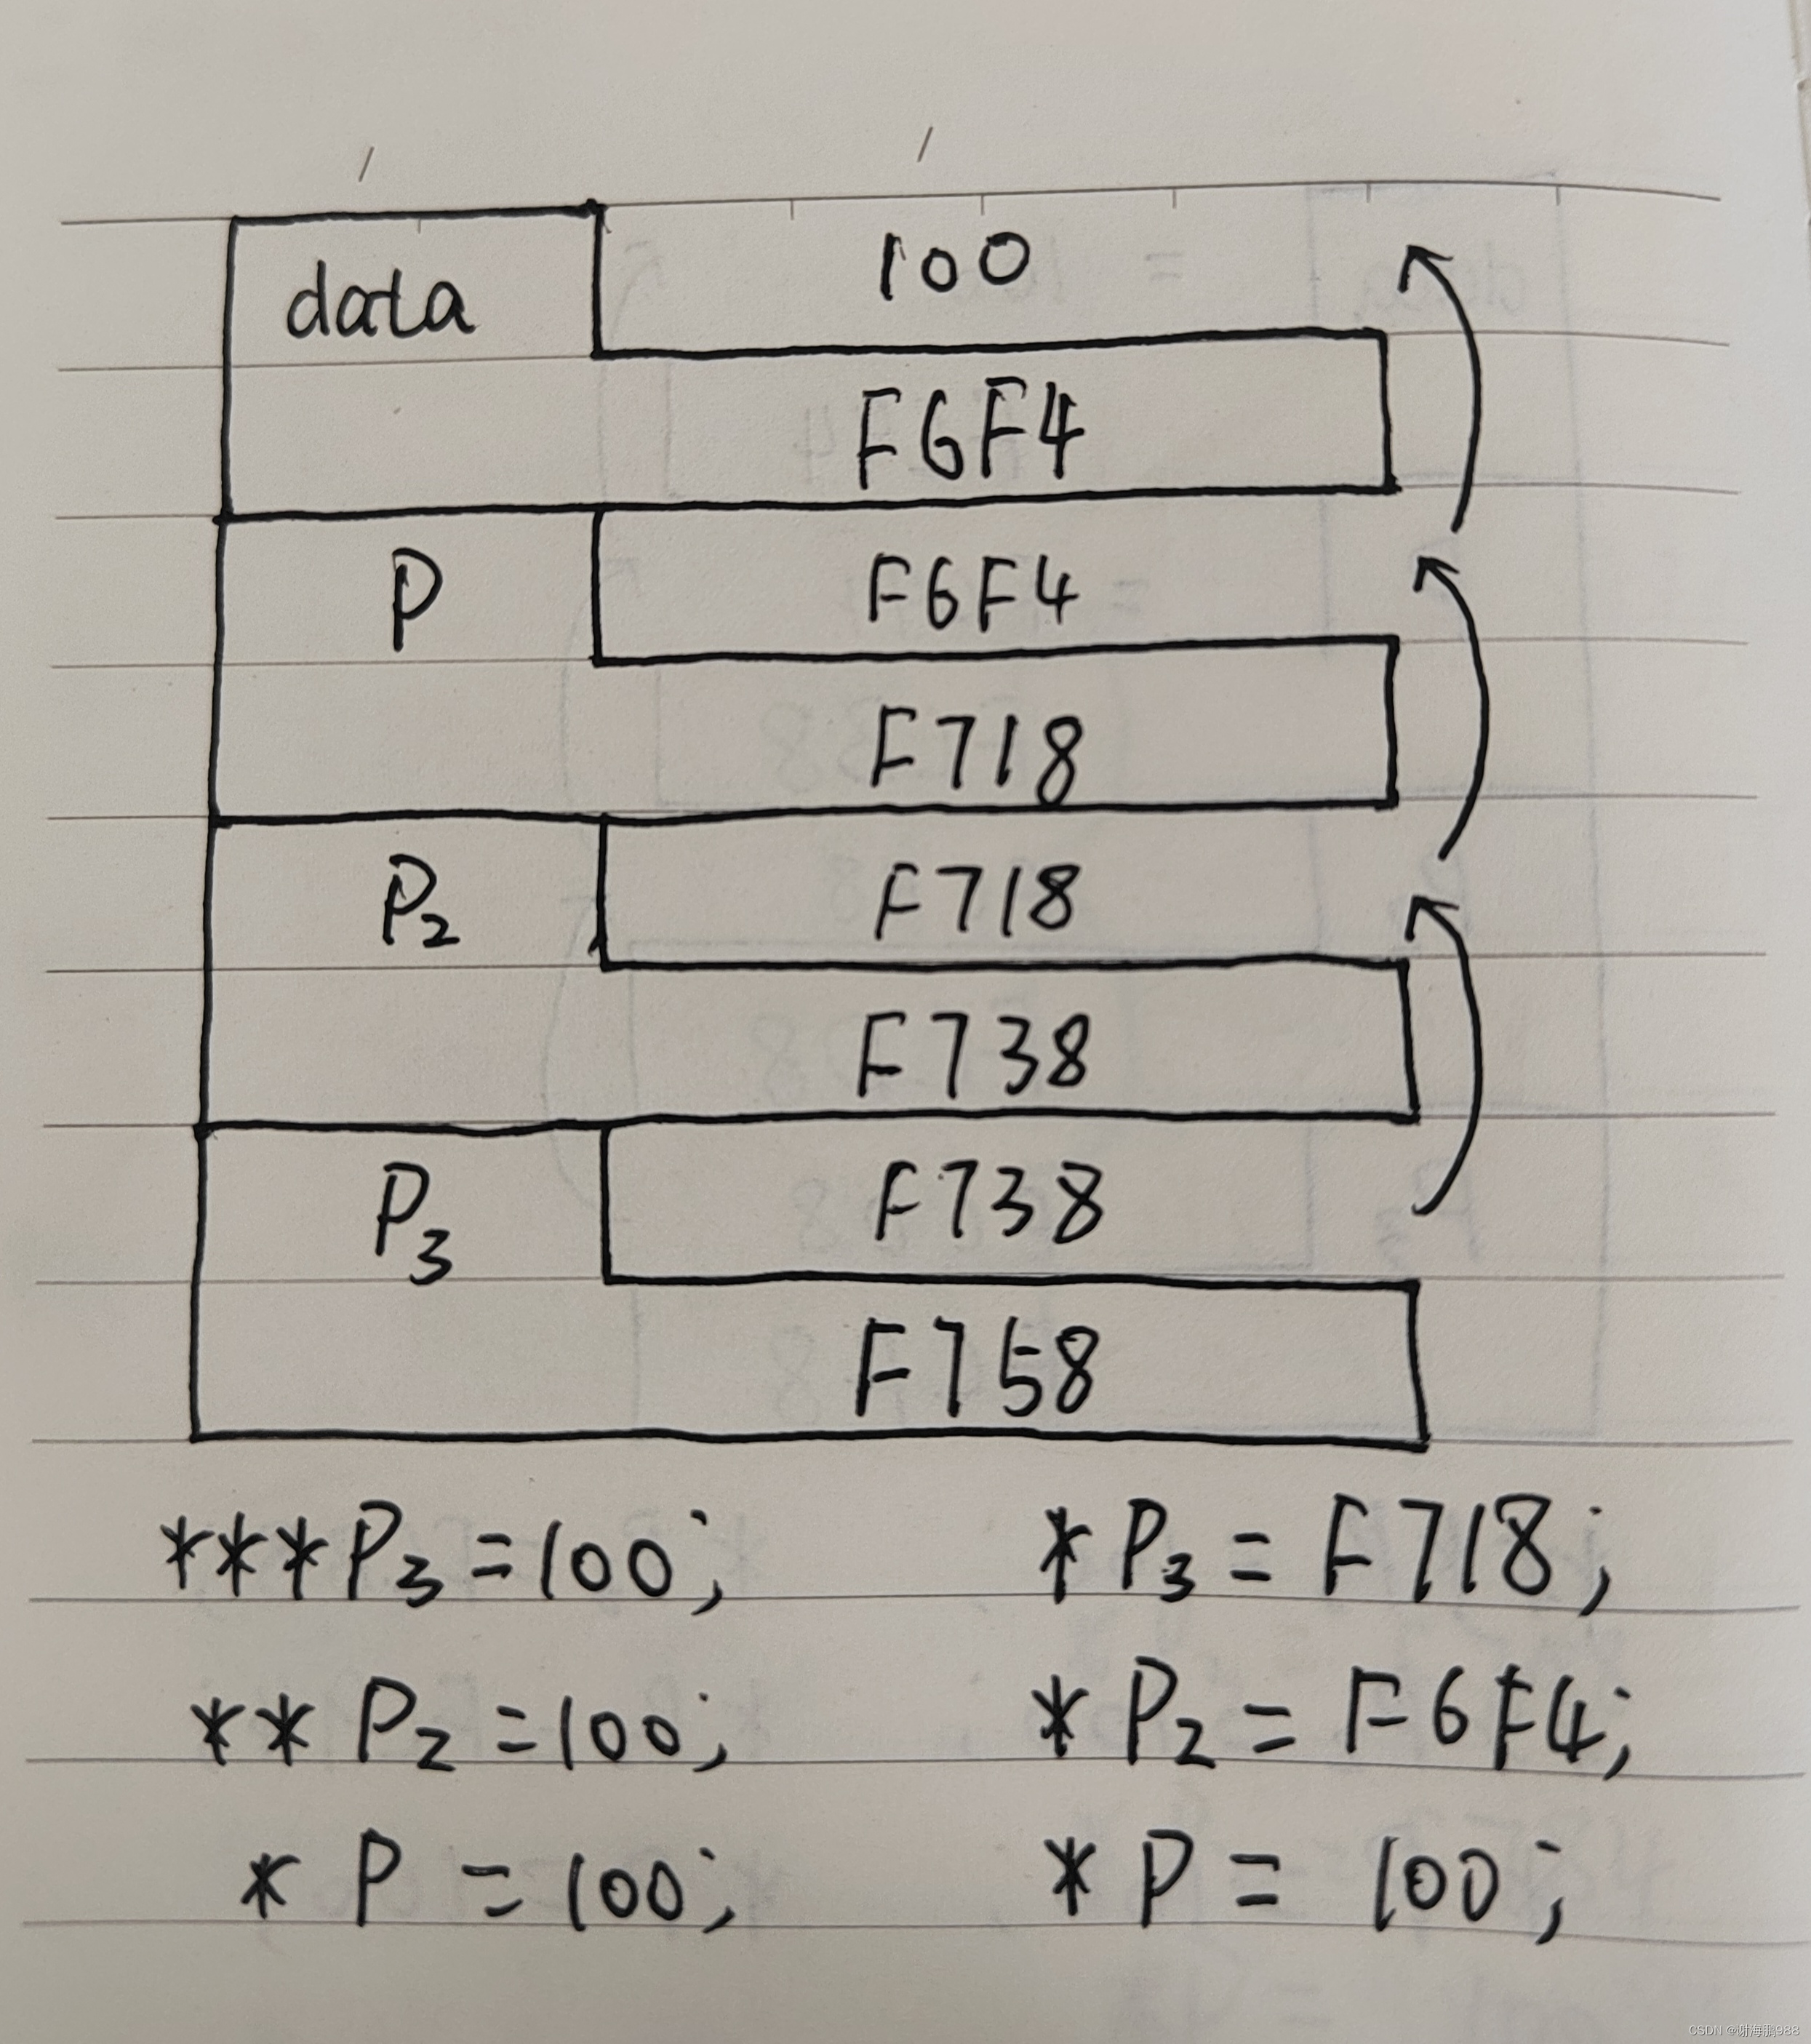 data 100
F6F4
P F6F4
F718
P2 F718
F738
P3 F738
F758
***P3=100; *P3=F718;
**P2=100; *P2=F6F4;
*P=100; *P=100;
CSDN @谢海鹏988